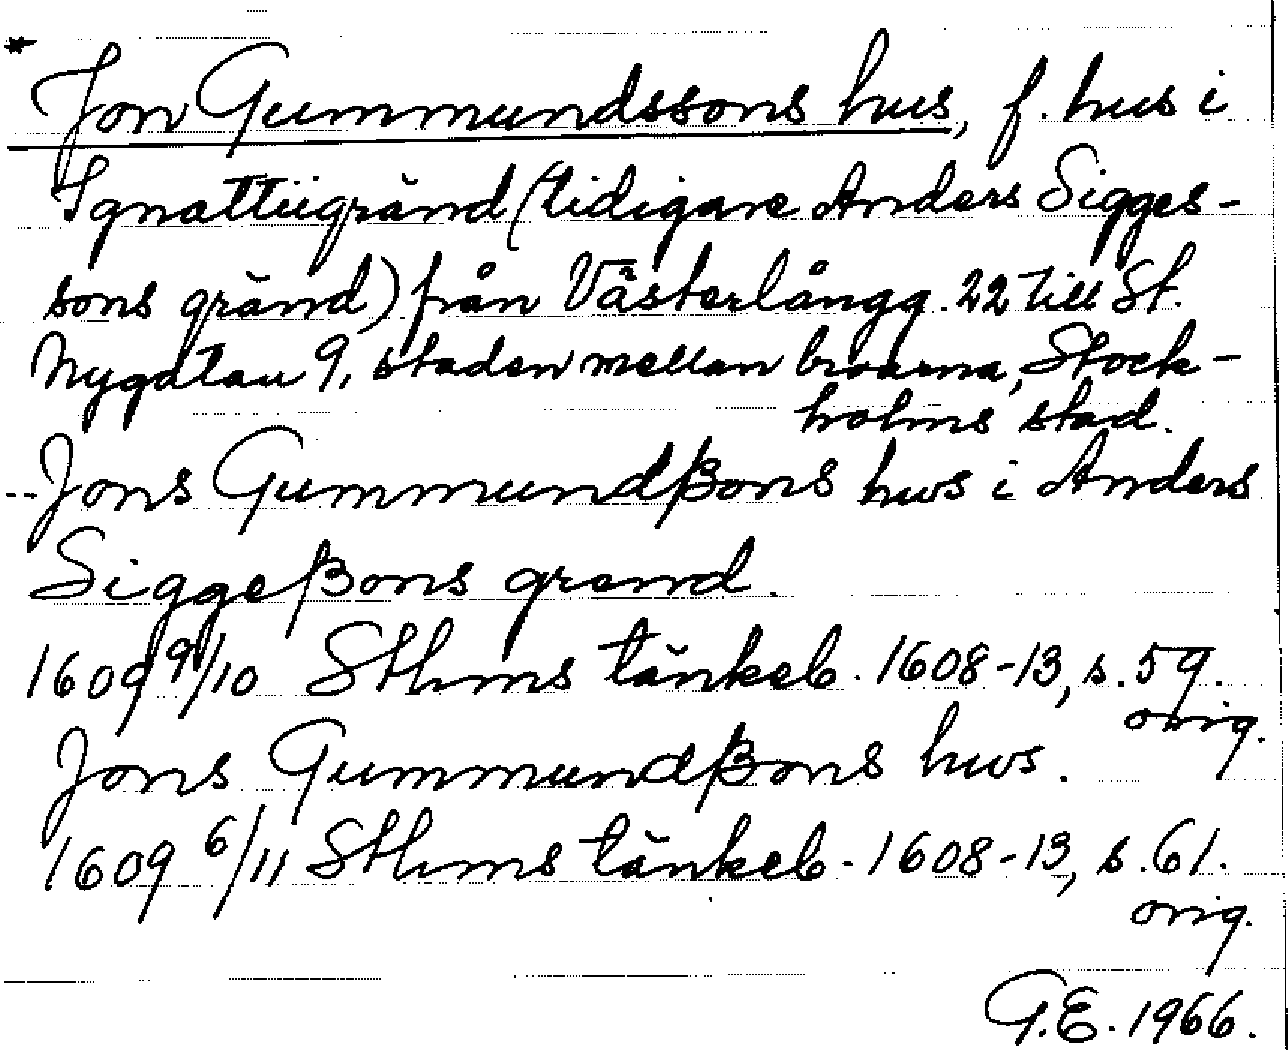 * Jon Gummundssons hus, f. hus i
Ignattiigränd (tidigare Anders Sigges-
sons gränd) från Västerlångg. 22 till St.
Nygatan 9, staden mellan broarna, Stock-
holms stad.
-- Jons Gummundßons hws i Anders
Siggeßons grend.
1609 9/10 Sthms tänkeb. 1608-13, s. 59.
orig.
Jons Gummundßons hws.
1609 6/11 Sthms tänkeb. 1608-13, s. 61.
orig.
G.E. 1966.